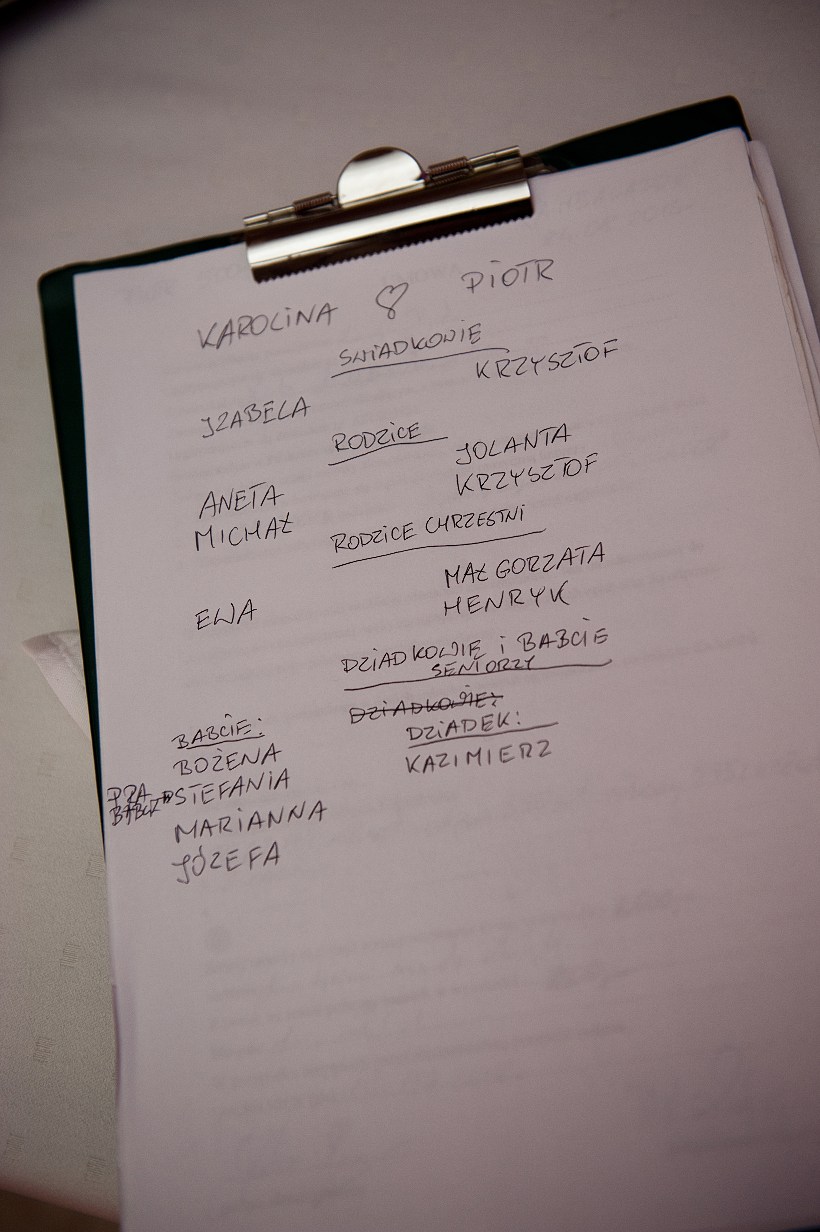 KAROLINA ♡ PIOTR
ŚWIADKOWIE
IZABELA KRZYSZTOF
RODZICE
ANETA JOLANTA
MICHAŁ KRZYSZTOF
RODZICE CHRZESTNI
EWA MAŁGORZATA
HENRYK
DZIADKOWIE i BABCIE
SENIORZY
DZIADKOWIE:
BABCIE: DZIADEK:
BOŻENA KAZIMIERZ
PRA BABCIA STEFANIA
MARIANNA
JÓZEFA